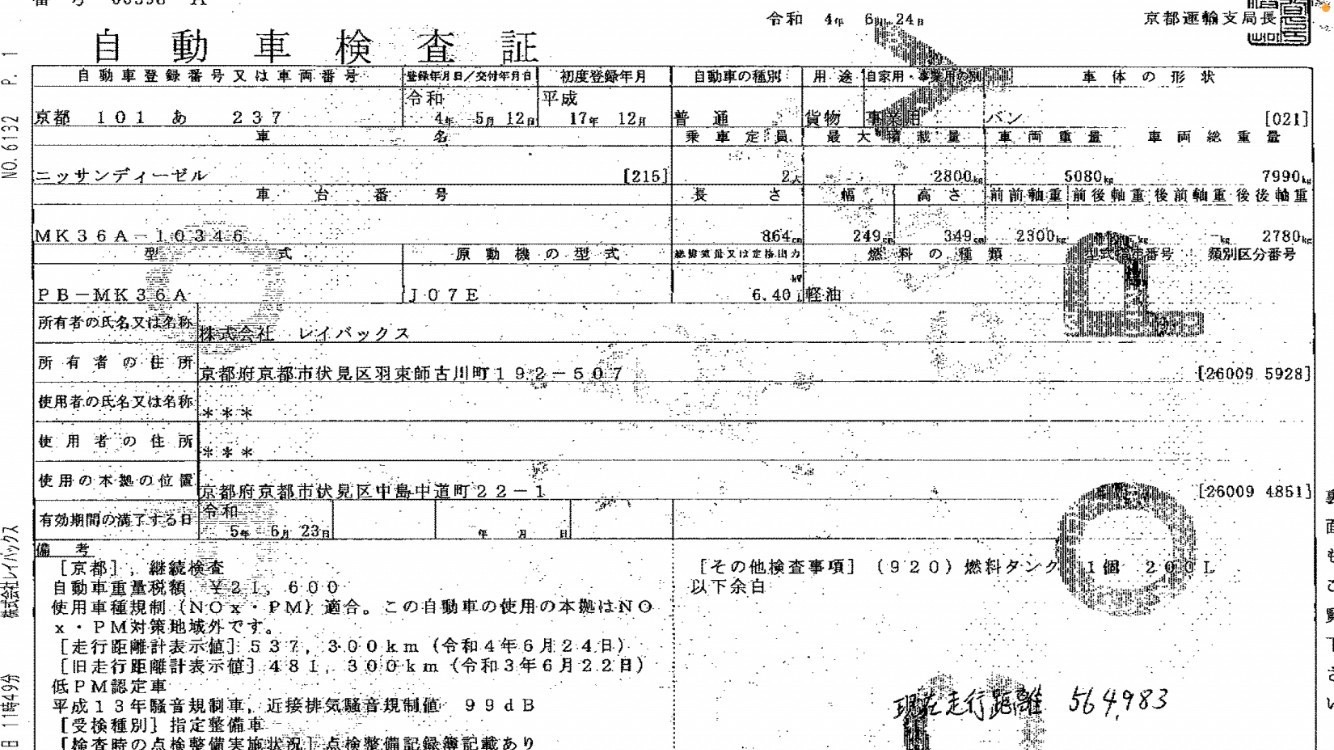 令和 4年 6月 24日 京都運輸支局長
自動車検査証
自動車登録番号又は車両番号 登録年月日/交付年月日 初度登録年月 自動車の種別 用途 自家用・事業用の別 車体の形状
令和 平成
京都 101 あ 237 4年 5月 12日 17年 12月 普通 貨物 事業用 バン [021]
車名 乗車定員 最大積載量 車両重量 車両総重量
ニッサンディーゼル [215] 2人 2800kg 5080kg 7990kg
車台番号 長さ 幅 高さ 前前軸重 前後軸重 後前軸重 後後軸重
MK36A-10346 864cm 249cm 349cm 2300kg kg kg 2780kg
型式 原動機の型式 総排気量又は定格出力 燃料の種類 型式指定番号 類別区分番号
kW
PB-MK36A J07E 6.40L 軽油
所有者の氏名又は名称 株式会社 レイバックス
所有者の住所 京都府京都市伏見区羽束師古川町192-507 [26009 5928]
使用者の氏名又は名称 ***
使用者の住所 ***
使用の本拠の位置 京都府京都市伏見区中島中道町22-1 [26009 4851]
有効期間の満了する日 令和 5年 6月 23日 年 月 日
備考
[京都],継続検査
自動車重量税額 ¥21,600
使用車種規制(NOx・PM)適合。この自動車の使用の本拠はNO
x・PM対策地域外です。
[走行距離計表示値]537,300km(令和4年6月24日)
[旧走行距離計表示値]481,300km(令和3年6月22日)
低PM認定車
平成13年騒音規制車,近接排気騒音規制値 99dB
[受検種別]指定整備車
[検査時の点検整備実施状況]点検整備記録簿記載あり
[その他検査事項](920)燃料タンク 1個 200L
以下余白
現在走行距離 564,983
NO.6132 P. 1
株式会社レイバックス
日 11時49分